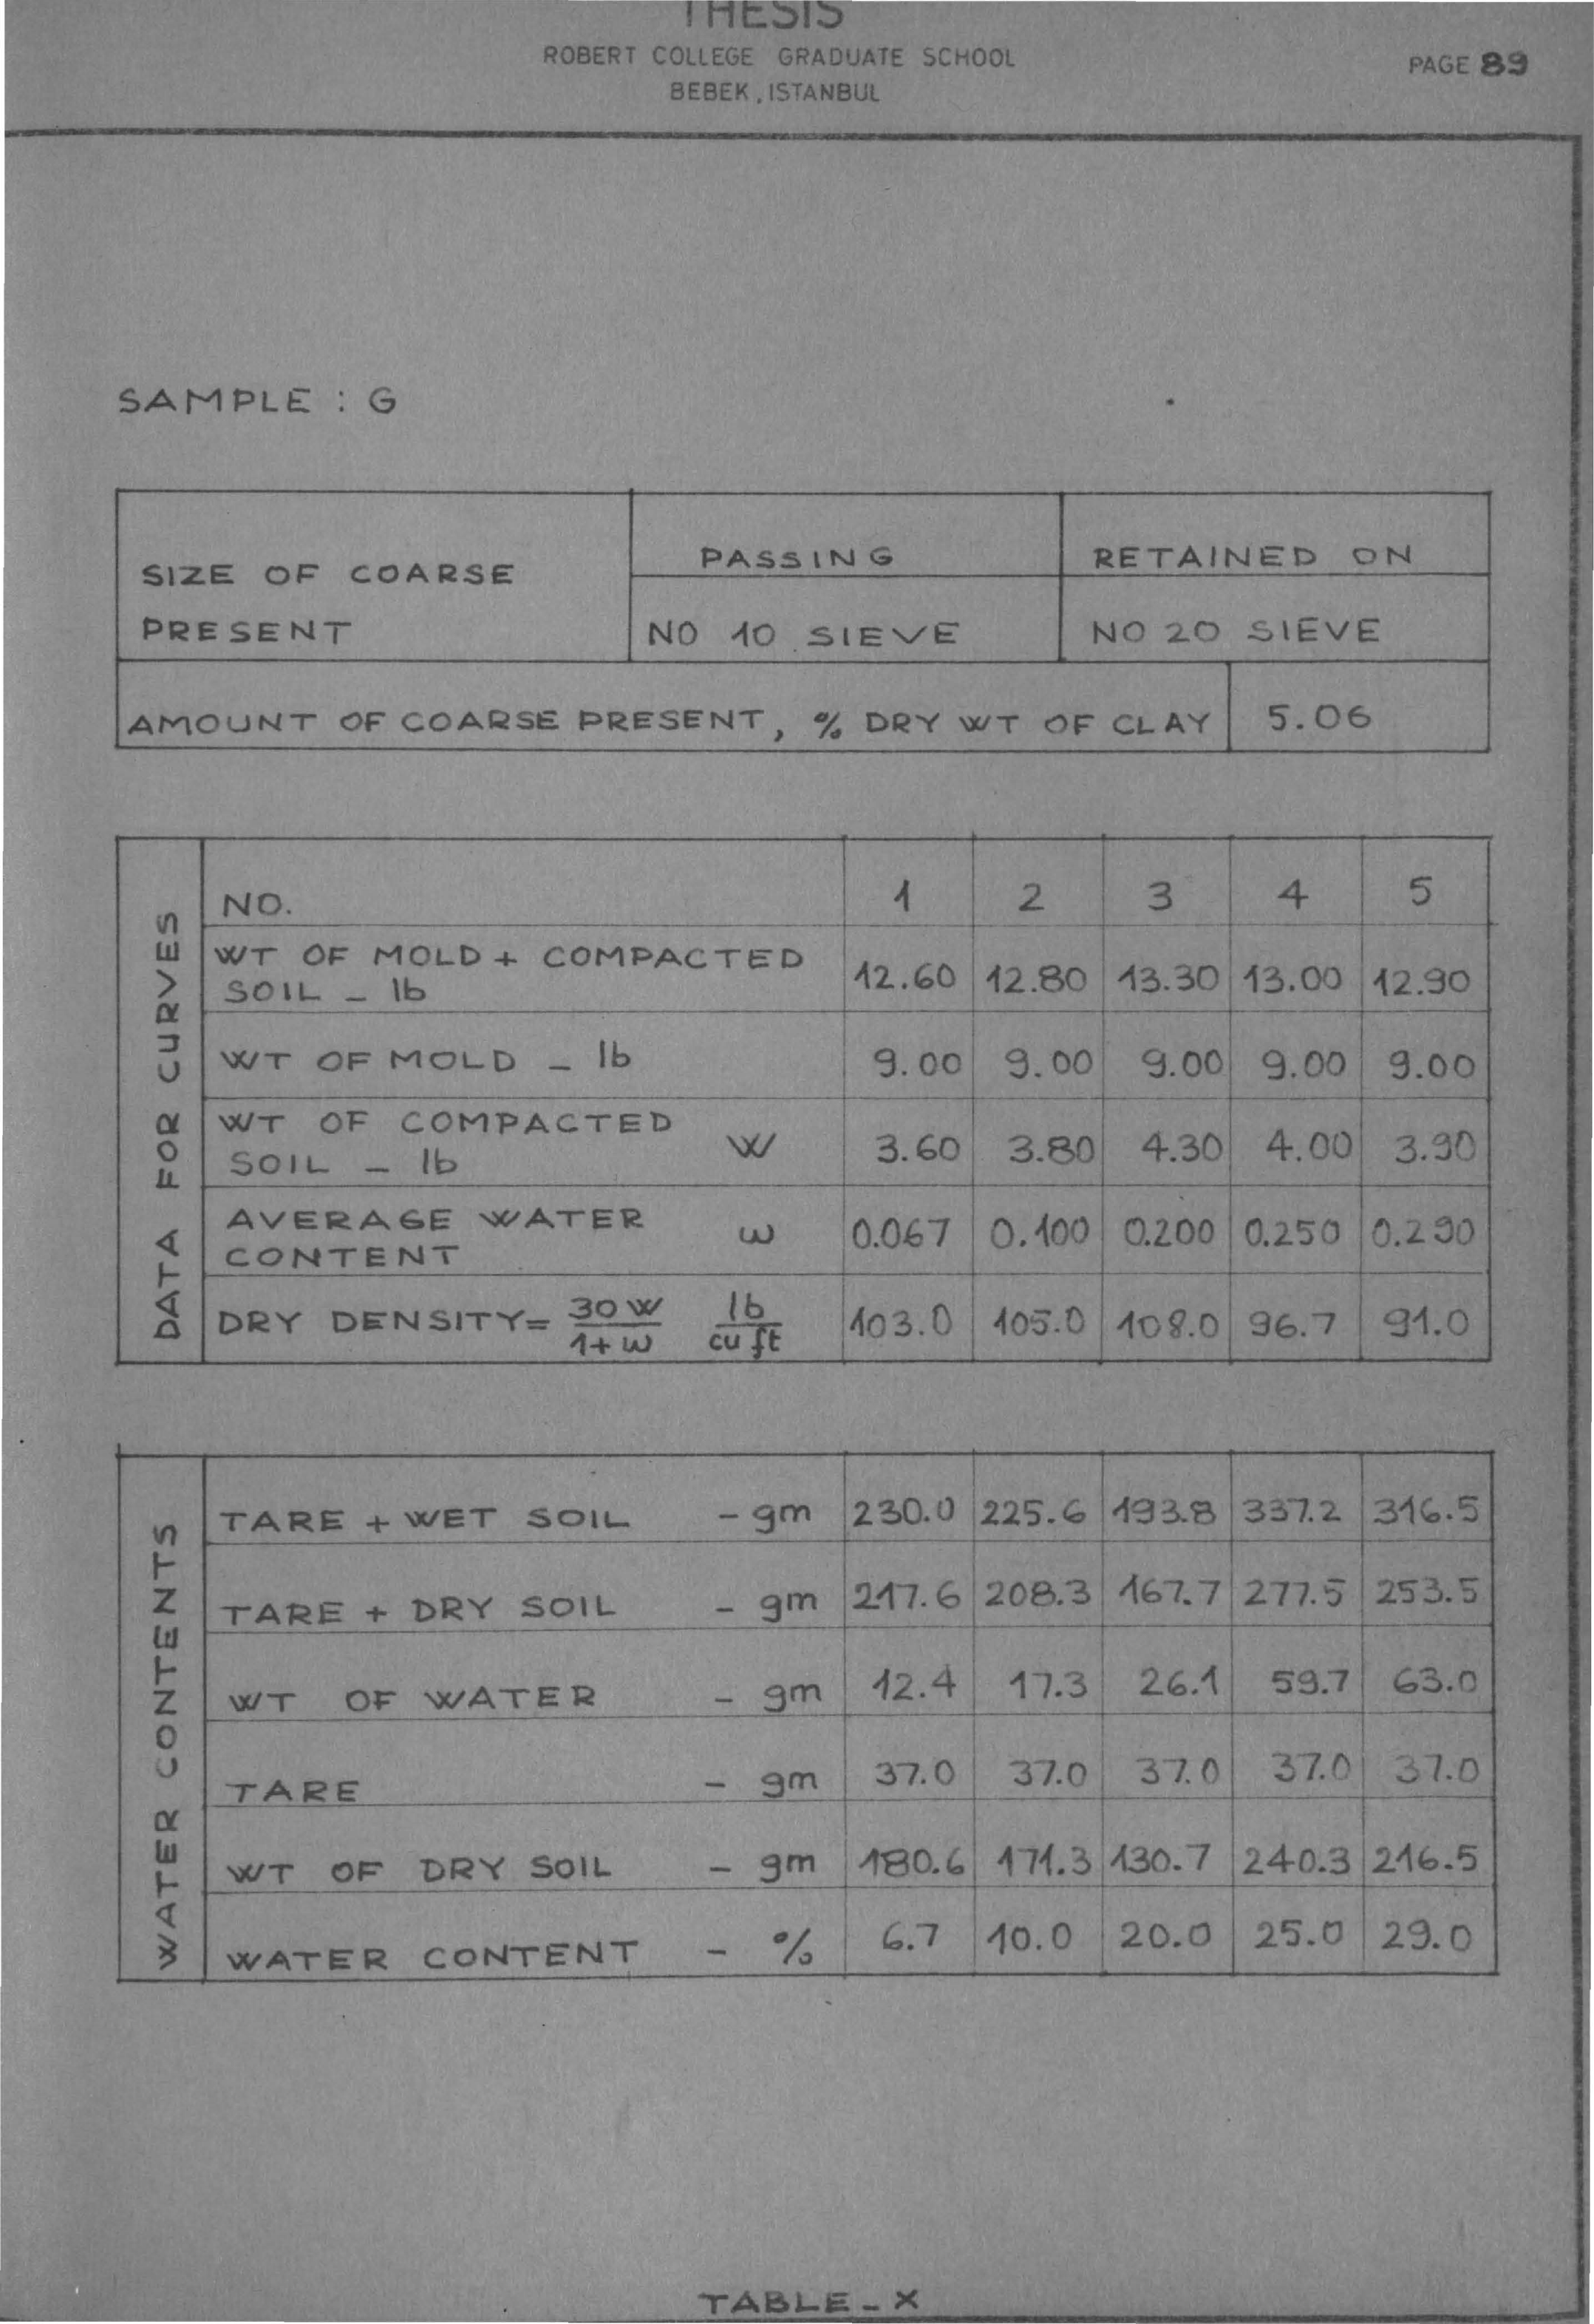 THESIS
ROBERT COLLEGE GRADUATE SCHOOL
PAGE 89
BEBEK, ISTANBUL
SAMPLE : G
SIZE OF COARSE PRESENT
PASSING
RETAINED ON
NO 10 SIEVE
NO 20 SIEVE
AMOUNT OF COARSE PRESENT, % DRY WT OF CLAY 5.06
DATA FOR CURVES
NO. 1 2 3 4 5
WT OF MOLD + COMPACTED
SOIL - lb 12.60 12.80 13.30 13.00 12.90
WT OF MOLD - lb 9.00 9.00 9.00 9.00 9.00
WT OF COMPACTED
SOIL - lb W 3.60 3.80 4.30 4.00 3.90
AVERAGE WATER
CONTENT w 0.067 0.100 0.200 0.250 0.290
DRY DENSITY = 30W/1+w lb/cu ft 103.0 105.0 108.0 96.7 91.0
WATER CONTENTS
TARE + WET SOIL - gm 230.0 225.6 193.8 337.2 316.5
TARE + DRY SOIL - gm 217.6 208.3 167.7 277.5 253.5
WT OF WATER - gm 12.4 17.3 26.1 59.7 63.0
TARE - gm 37.0 37.0 37.0 37.0 37.0
WT OF DRY SOIL - gm 180.6 171.3 130.7 240.3 216.5
WATER CONTENT - % 6.7 10.0 20.0 25.0 29.0
TABLE - X